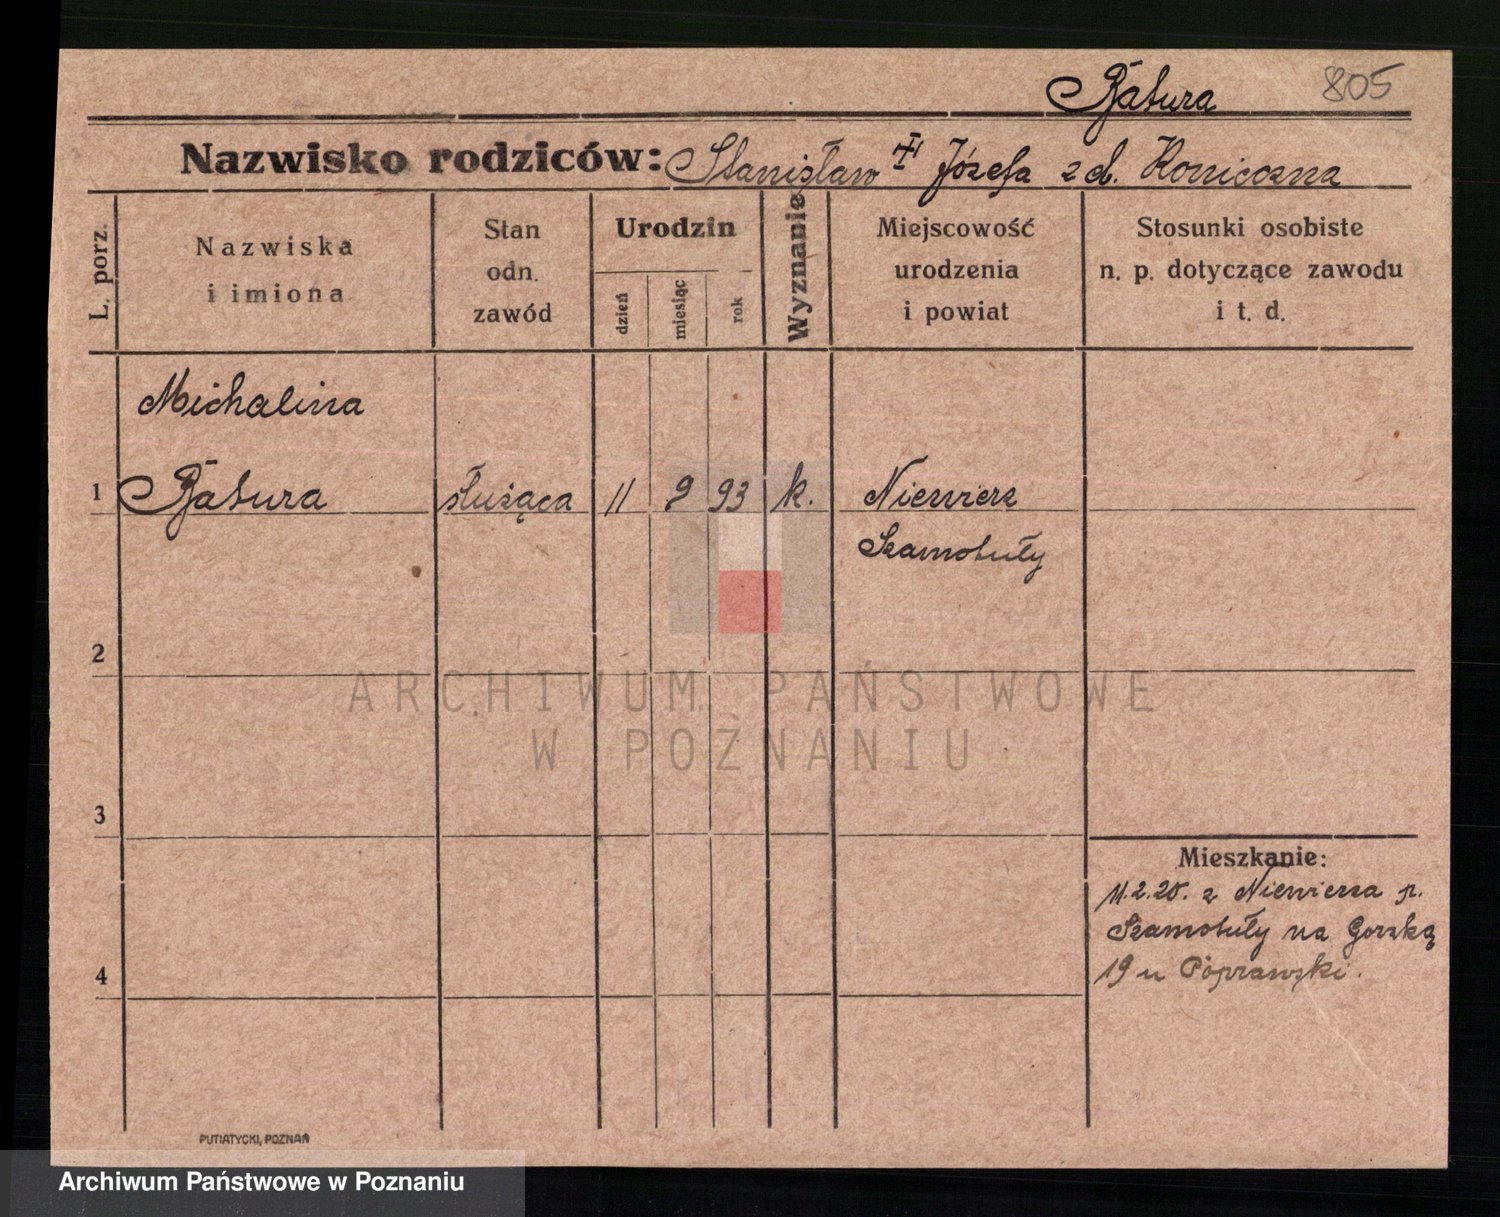 Batura 805
Nazwisko rodziców: Stanisław Józefa z d. Konieczna
L. porz.
Nazwiska
i imiona
Stan
odn.
zawód
Urodzin
dzień
miesiąc
rok
Wyznanie
Miejscowość
urodzenia
i powiat
Stosunki osobiste
n. p. dotyczące zawodu
i t. d.
Michalina
1 Batura służąca 11 9 93 k. Niewierz
Szamotuły
2
3
4
Mieszkanie:
11.2.20. z Niewierza p.
Szamotuły na Gorską
19 u Poprawski.
PUTIATYCKI, POZNAŃ
ARCHIWUM PAŃSTWOWE
W POZNANIU
Archiwum Państwowe w Poznaniu